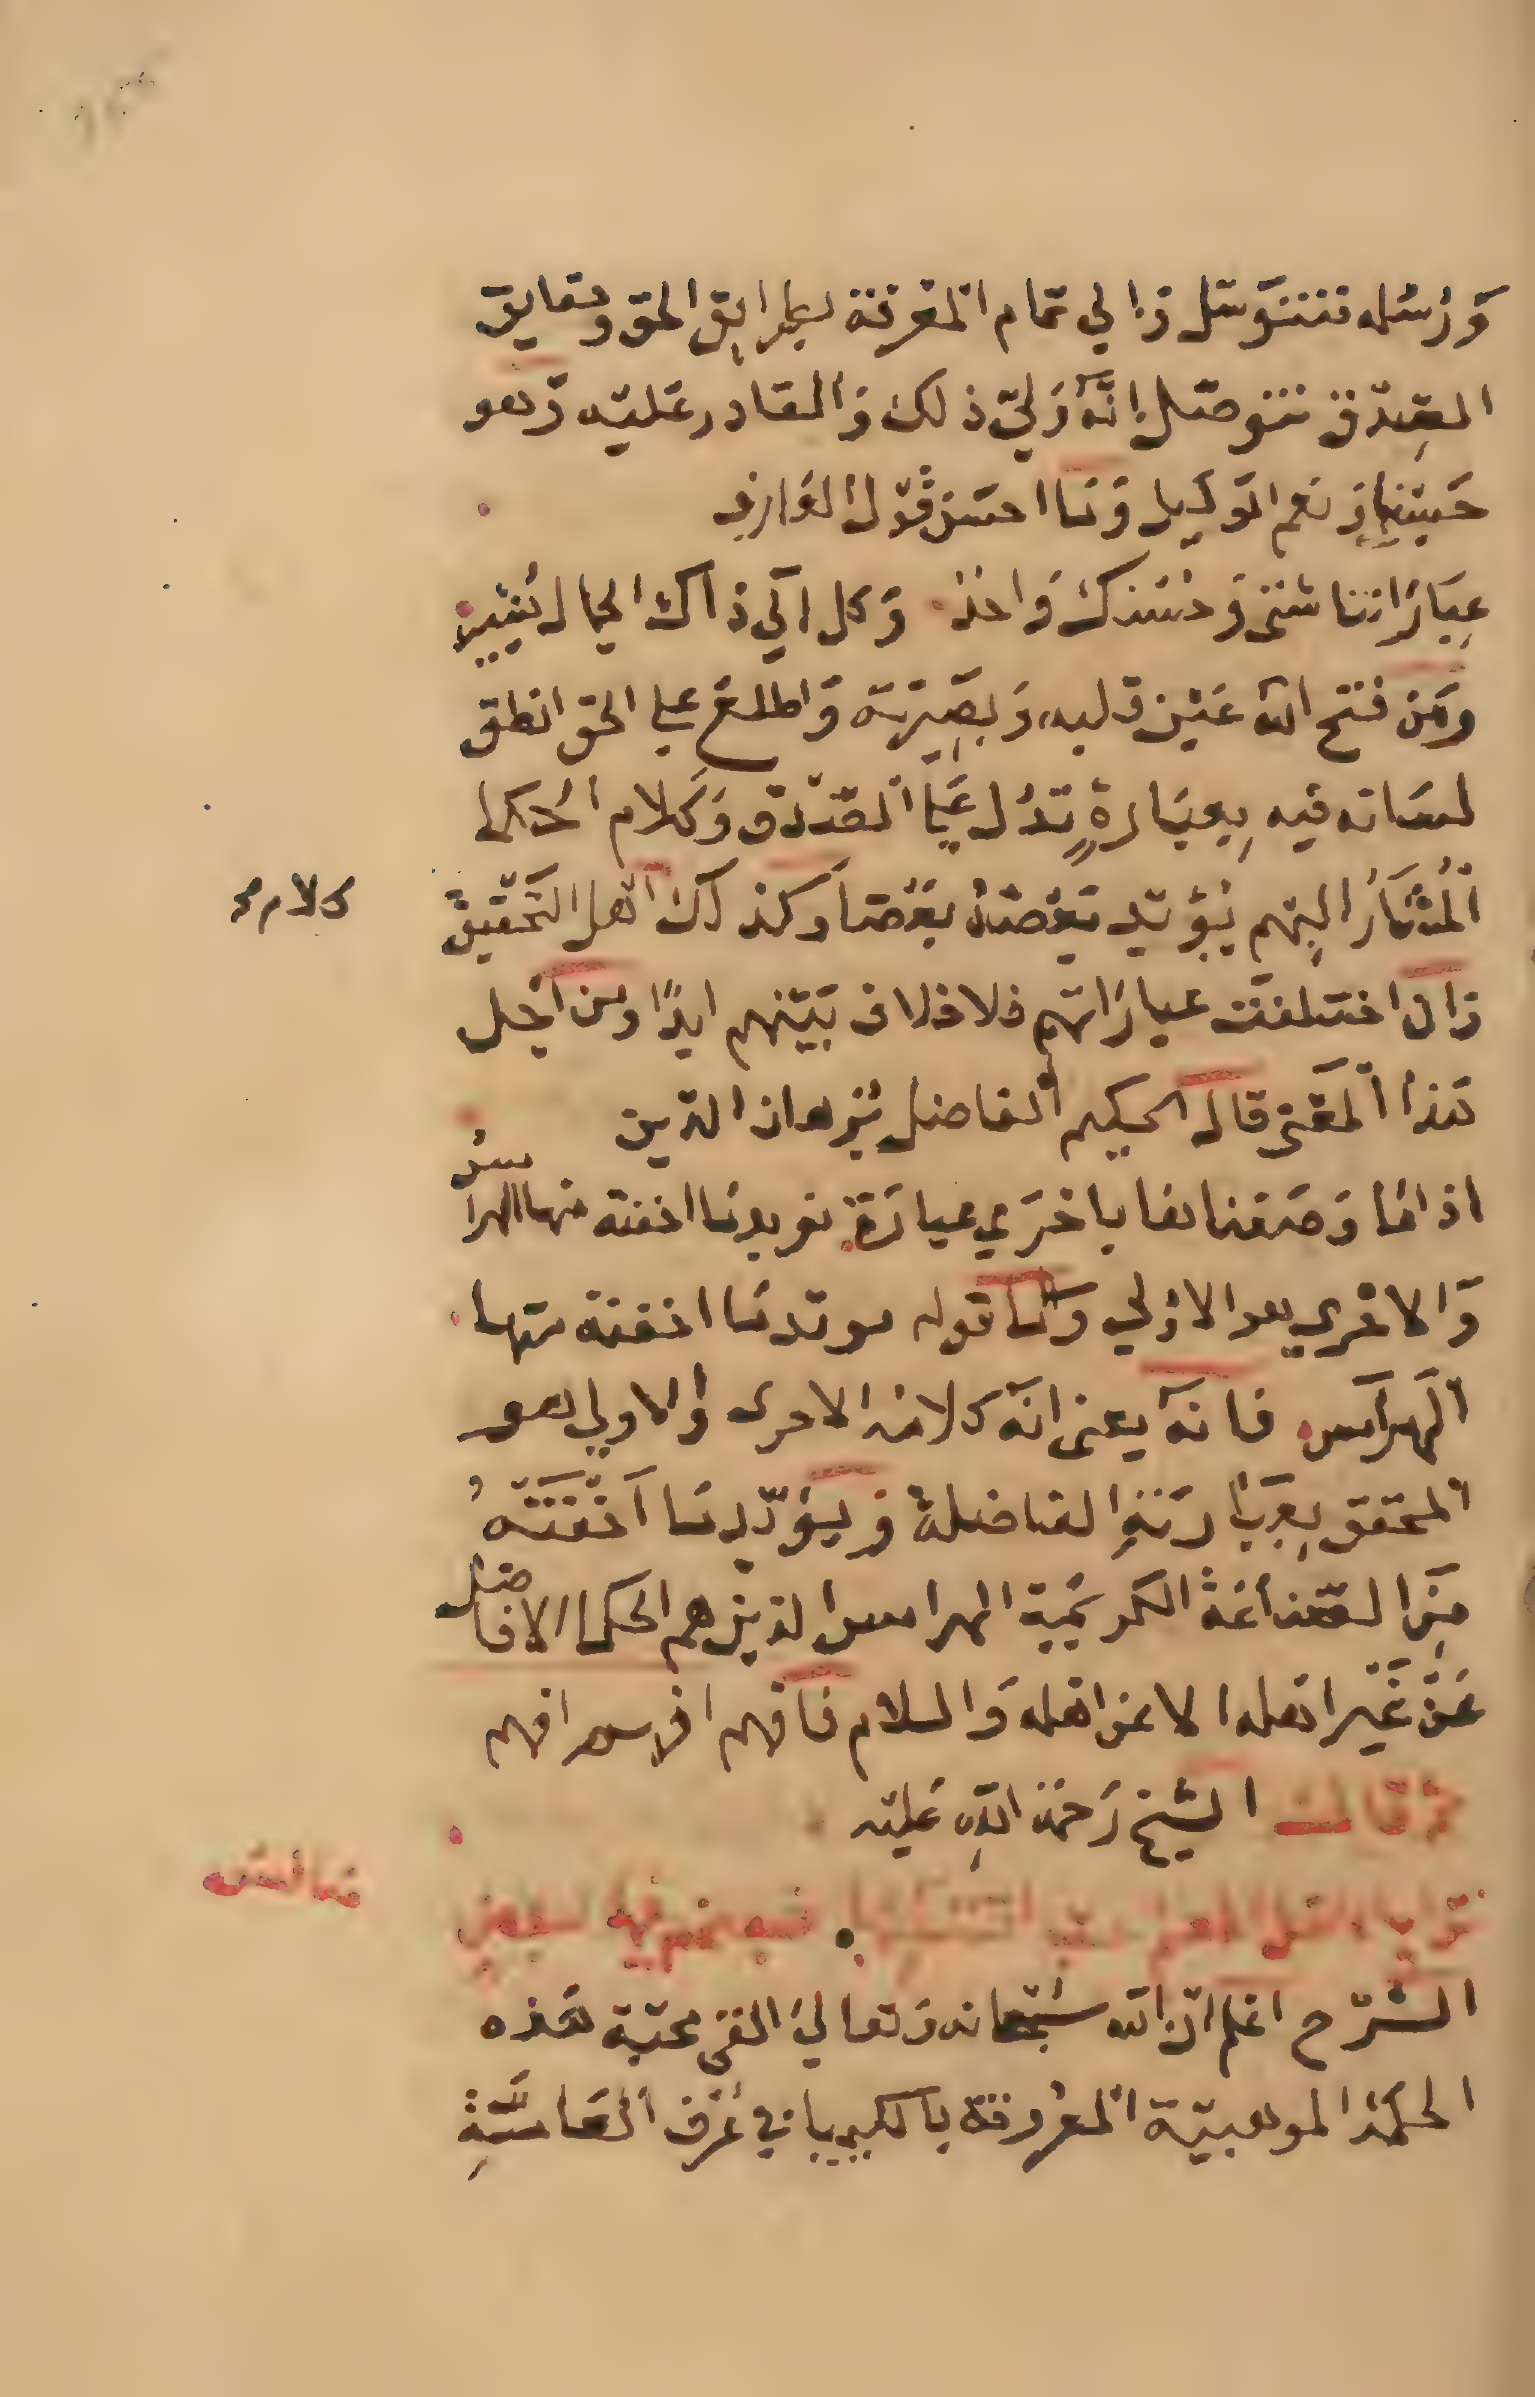 ورسله فنتوسل الي تمام المعرفة بطرايق الحق وحقايق
الصدق نتوصل انه ولي ذلك والقادر عليه وهو
حسبنا ونعم الوكيل وما احسن قول العارف
عباراتنا شتى وحسنك واحد وكل الى ذاك الجمال يشير
ومن فتح الله عين قلبه وبصيرته واطلع علي الحق انطق
لسانه فيه بعبارة تدل على الصدق وكلام الحكما
المشار اليهم يؤيد بعضه بعضا وكذلك اهل التحقيق
وان اختلفت عباراتهم فلا خلاف بينهم ابدا ومن اجل
هذا المعنى قال الحكيم الفاضل برهان الدين
اذا ما وصفناها باخرى عبارة نريد ما اخفته منها الهرامس
والاخرى هو الاولي واما قوله ما اخفته منها
الهرامس فانه يعنى انه كلامه الاخرى والاولي هو
المحقق بعبارته الفاضلة ويؤيد ما اخفته
من الصناعة الكريمة الهرامس الذين هم الحكما الافاضل
عن غير اهله لا عن اهله والسلام فافهم افهم
ثم قال الشيخ رحمة الله عليه
الشرح اعلم ان الله سبحانه وتعالى القى محبة هذه
الحكمة الموهبية المعروفة بالكيميا في عرف العامة